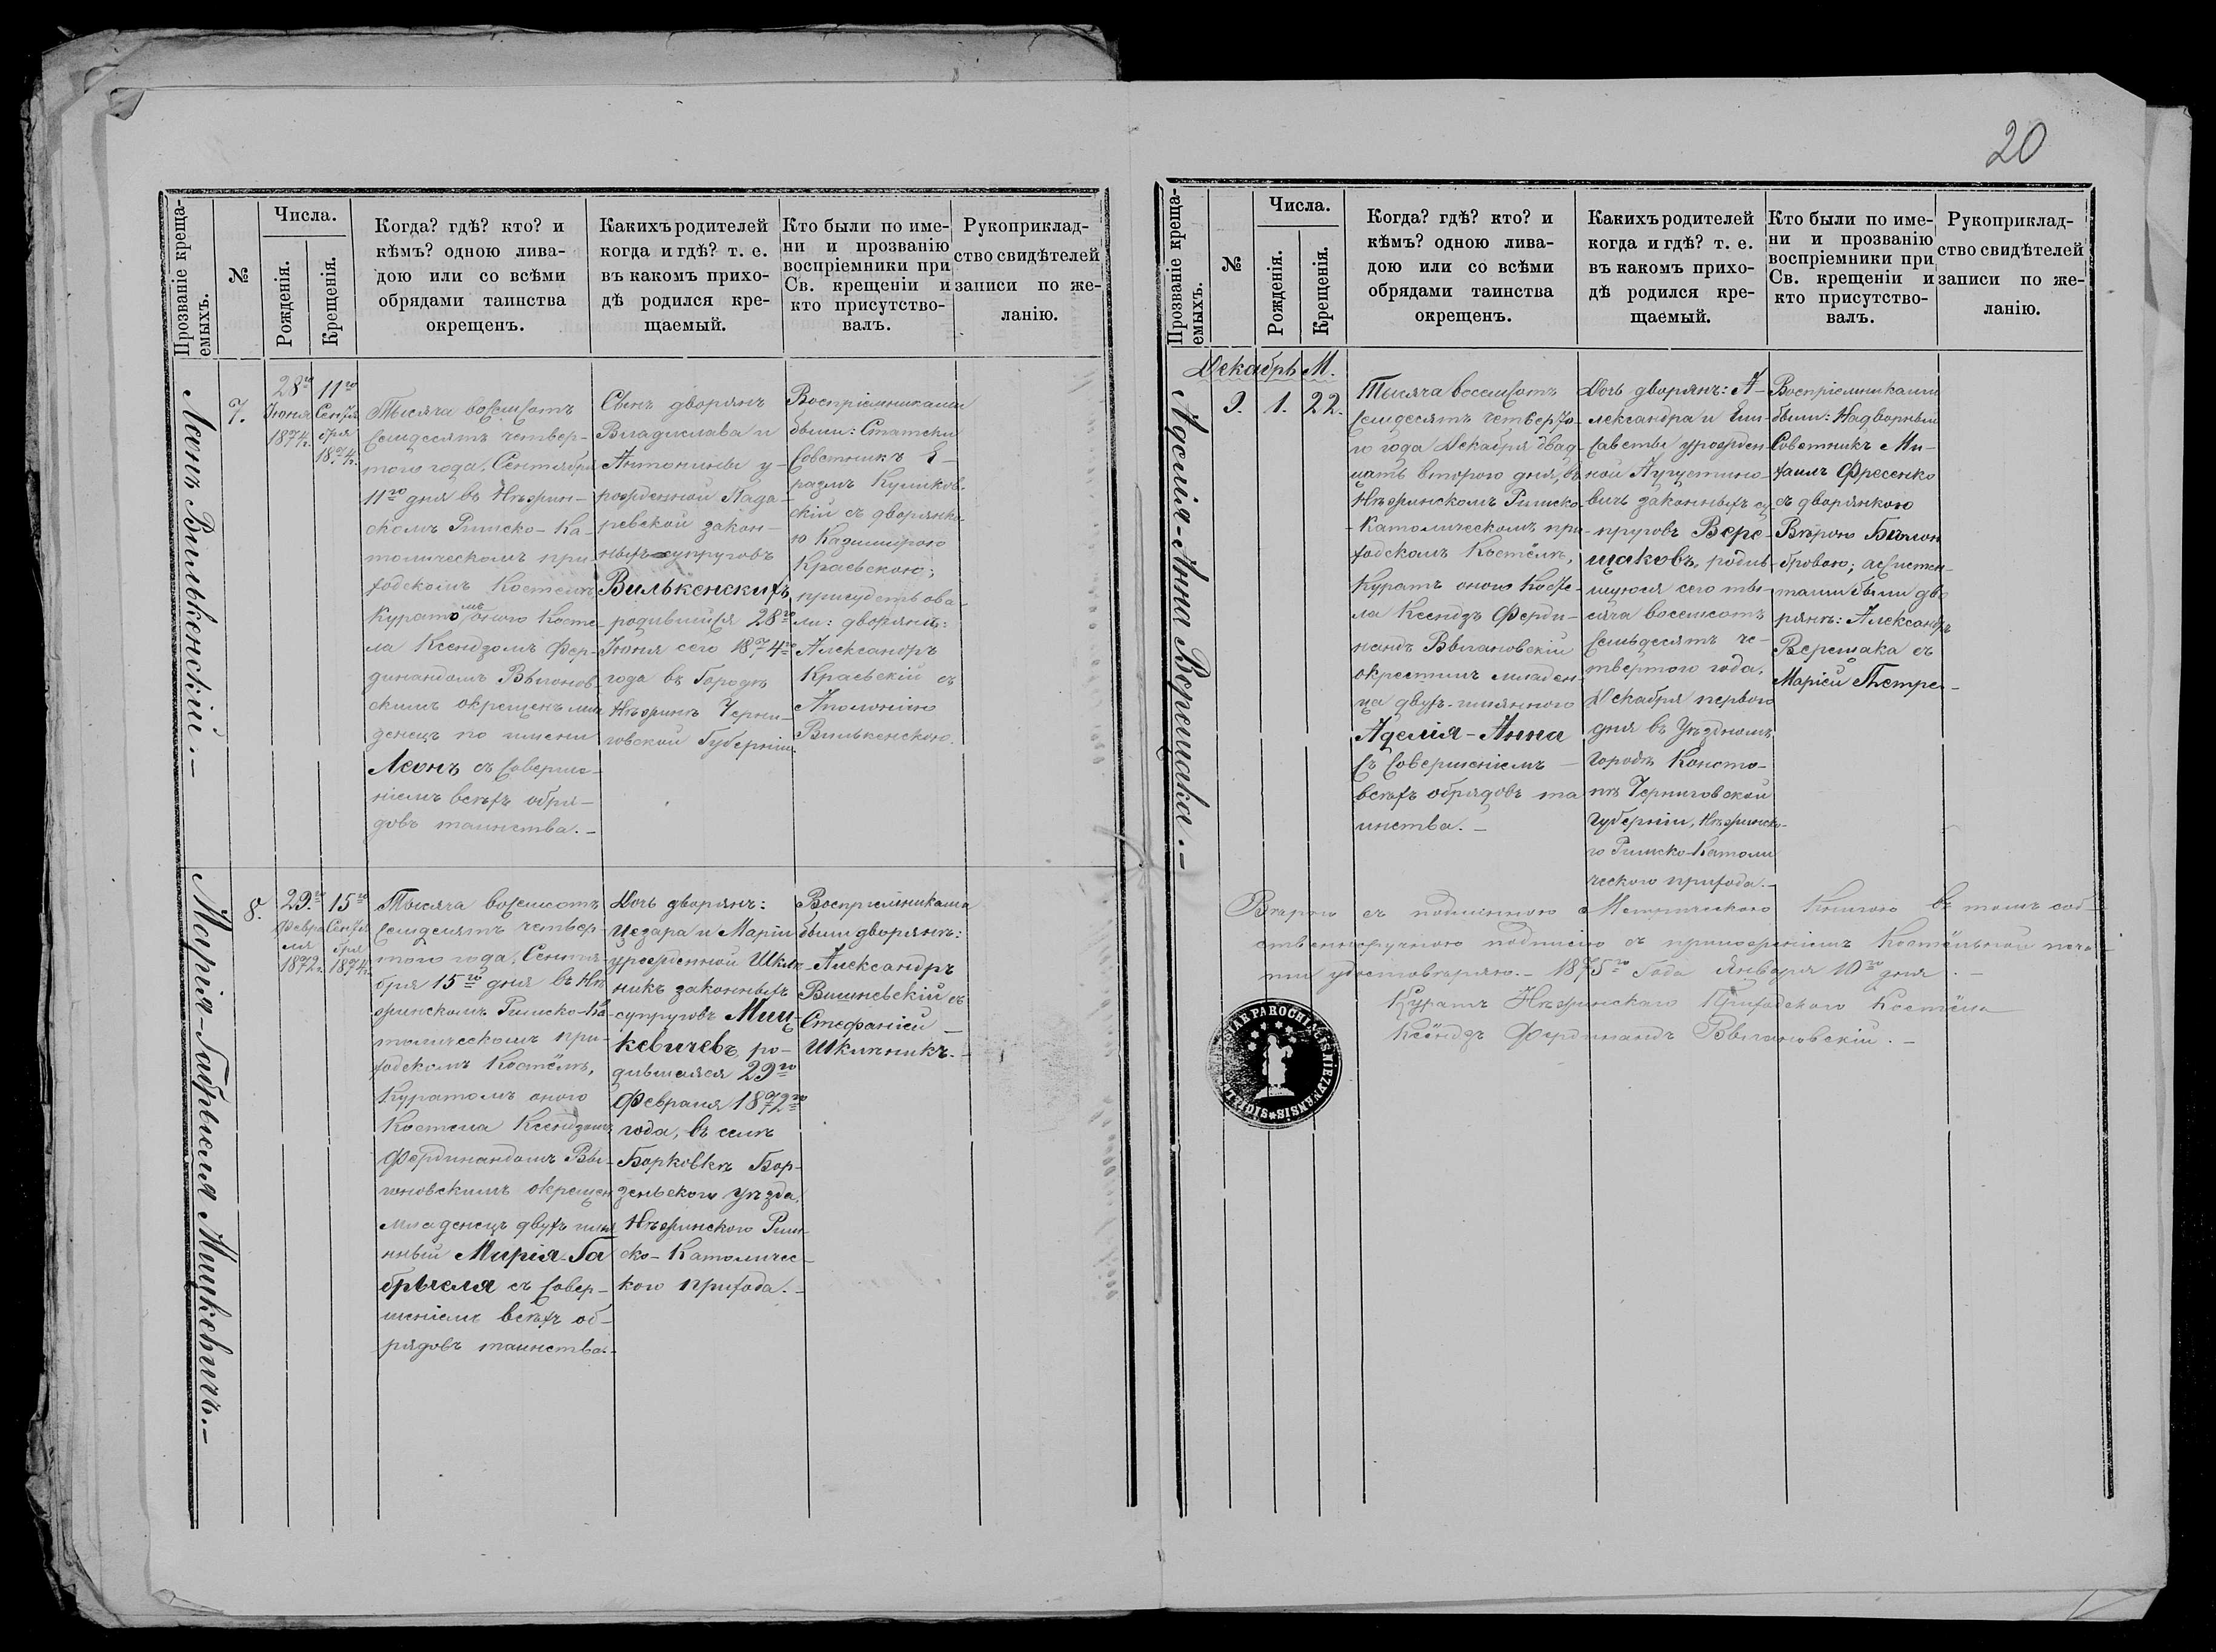 20
Прозваніе креща-
емыхъ.
№
Числа.
Рожденія.
Крещенія.
Когда? гдѣ? кто? и
кѣмъ? одною лива-
дою или со всѣми
обрядами таинства
окрещенъ.
Какихъ родителей
когда и гдѣ? т. е.
въ какомъ прихо-
дѣ родился кре-
щаемый.
Кто были по име-
ни и прозванію
воспріемники при
Св. крещеніи и
кто присутство-
валъ.
Рукоприклад-
ство свидѣтелей
записи по же-
ланію.
Леонъ Вилькенскій.-
7.
28го
Іюня
1874г.
11го
Сентя-
бря
1874г.
Тысяча восемсотъ
семдесятъ четвер-
того года, Сентября
11го дня въ Нѣжин-
скомъ Римско-Ка-
толическомъ при-
ходскомъ Костелѣ
Куратомъ оного Косте-
ла Ксендзомъ Фер-
динандомъ Выгонов-
скимъ окрещенъ мла
денецъ по имени
Леонъ съ соверше-
ніемъ всѣхъ обря-
довъ таинства.-
Сынъ дворянъ
Владислава и
Антонины у-
рожденной
ревской закон-
ныхъ супруговъ
Вилькенскихъ,
родившійся 28го
Іюня сего 1874го
года въ Городѣ
Нѣжинѣ Черни-
говской Губерніи.
Воспріемниками
были: Статски
Совѣтникъ Е-
размъ Куликов-
скій съ дворянко
ю Казимирою
Краевскою;
присудствова-
ли: дворяня:
Александръ
Краевскій съ
Аполоніею
Вилькенскою.
Марія-Габрыеля Мицкевичъ.-
8.
29го
Февра
ля
1872г.
15го
Сентя
бря
1874г.
Тысяча восемсотъ
семдесятъ четвер-
того года, Сентя-
бря 15го дня въ Нѣ
жинскомъ Римско-Ка-
толическомъ при-
ходскомъ Костёлѣ,
Куратомъ оного
Костела Ксендзомъ
Фердинандомъ Вы-
гоновскимъ окрещен
младенецъ двухъ имя
нный Марія-Га
брыеля съ совер-
шеніемъ всѣхъ об-
рядовъ таинства.-
Дочь дворянъ:
Цезара и Маріи
урожденной Шкля-
никъ законныхъ
супруговъ Миц-
кевичевъ, ро-
дившаяся 29го
Февраля 1872го
года, въ селѣ
Борковкѣ Бор-
зенского уѣзда,
Нѣжинского Рим-
ско-Католичес-
кого прихода.-
Воспріемниками
были дворянъ:
Александръ
Вишневскій съ
Стефаніей-
Шклянникъ.-
Прозваніе креща-
емыхъ.
№
Числа.
Рожденія.
Крещенія.
Когда? гдѣ? кто? и
кѣмъ? одною лива-
дою или со всѣми
обрядами таинства
окрещенъ.
Какихъ родителей
когда и гдѣ? т. е.
въ какомъ прихо-
дѣ родился кре-
щаемый.
Кто были по име-
ни и прозванію
воспріемники при
Св. крещеніи и
кто присутство-
валъ.
Рукоприклад-
ство свидѣтелей
записи по же-
ланію.
Декабрь М.
Аделія-Анна Верещака.-
9.
1.
22.
Тысяча восемсотъ
семдесятъ четверто-
го года Декабря двад-
цать второго дня, въ
Нѣжинскомъ Римско
-Католическомъ при-
ходскомъ Костёлѣ,
Куратъ оного Косте-
ла Ксендзъ Ферди-
нандъ Выгановскій
окрестилъ младен-
ца двухъ-имянного
Аделія-Анна
съ совершеніемъ-
всѣхъ обрядовъ та
инства.-
Дочь дворянъ: А-
лександра и Ели-
саветы урожден-
ной Аугустино-
вичъ законныхъ су-
пруговъ Вере-
щаковъ, родив-
шуюся сего ты-
сяча восемсотъ
семьдесятъ че-
твертого года,
Декабря первого
дня въ Уѣздномъ
городѣ Коното-
пѣ Черниговской
Губерніи, Нѣжинско-
го Римско-Католи
ческого прихода.-
Воспріемниками
были: Надворный
Совѣтникъ Ми-
хаилъ Фресенко
съ дворянкою
Вѣрою
бровою; асистен-
тами были дво
рянъ: Александръ
Верещака съ
Маріей
Вѣрно съ подлинною Метрическою Книгою въ томъ соб-
ственноручною подписью съ приложеніемъ Костёльной печа-
ти удостовѣряю.- 1875го Года Января 10го дня.-
Куратъ Нѣжинскаго Приходского Костёла
Ксёндзъ Фердинандъ Выгановскій.-
PAROCHI